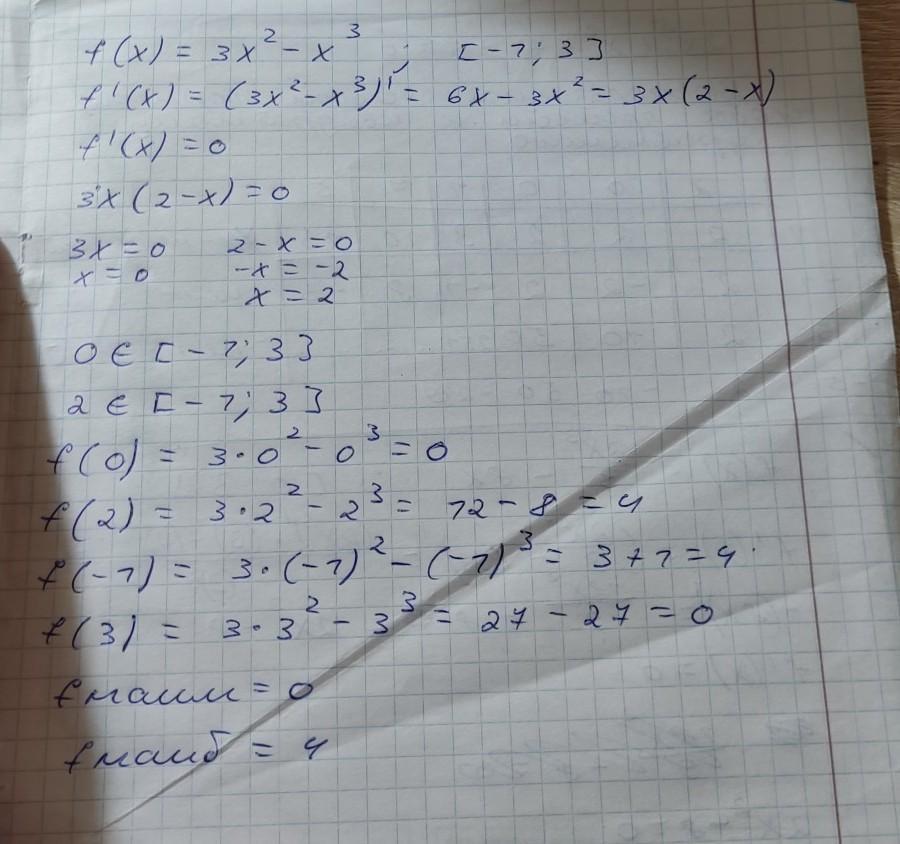 f(x) = 3x² - x³ ; [-1; 3]
f'(x) = (3x² - x³)' = 6x - 3x² = 3x(2-x)
f'(x) = 0
3x(2-x) = 0
3x = 0 2-x = 0
x = 0 -x = -2
x = 2
0 ∈ [-1; 3]
2 ∈ [-1; 3]
f(0) = 3·0² - 0³ = 0
f(2) = 3·2² - 2³ = 12 - 8 = 4
f(-1) = 3·(-1)² - (-1)³ = 3+1 = 4
f(3) = 3·3² - 3³ = 27 - 27 = 0
f наим = 0
f наиб = 4